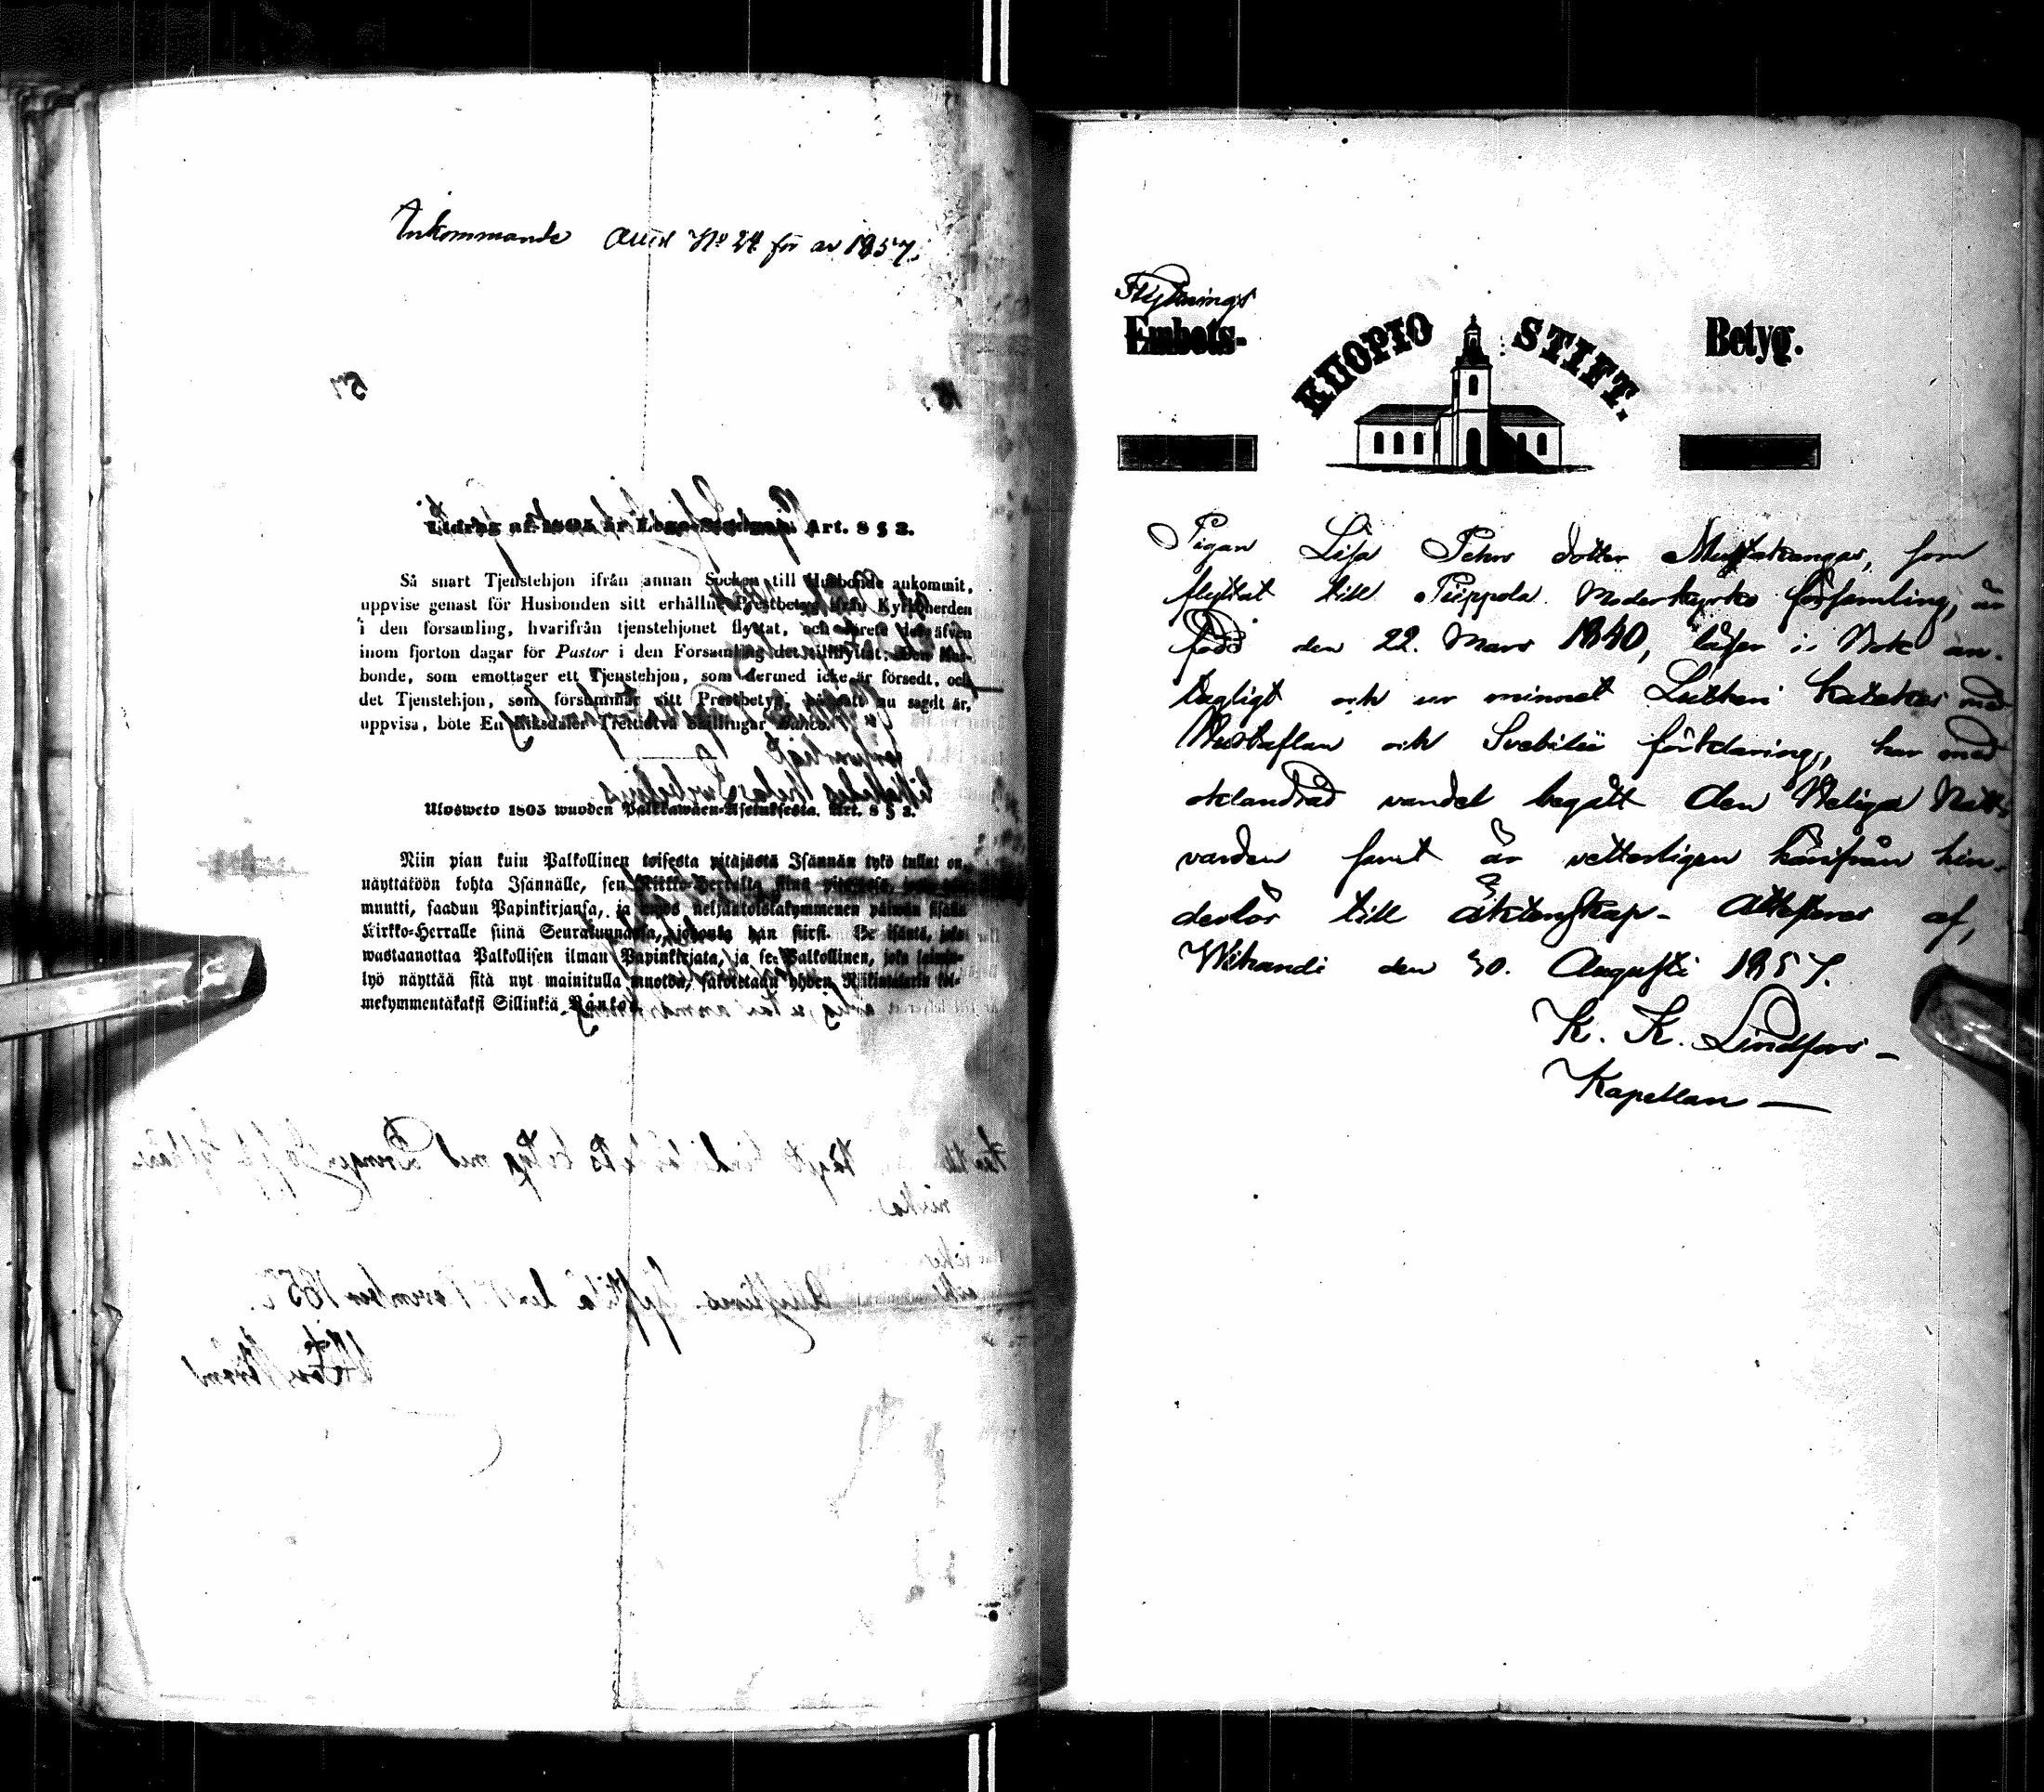 Inkommande Attest No 24 för år 1857.
Utdrag af 1805 år Lego-Stadgan. Art. 8 § 2.
Så snart Tjenstehjon ifrån annan Socken till Husbonde ankommit,
uppvise genast för Husbonden sitt erhållne Prestbetyg ifrån Kyrkoherden
i den församling, hvarifrån tjenstehjonet flyttat, och därefter äfven
inom fjorton dagar för Pastor i den Församling det tillflyttat; Den Hus-
bonde, som emottager ett Tjenstehjon, som dermed icke är försedt, och
det Tjenstehjon, som försummar sitt Prestbetyg, på sätt nu sagdt är,
uppvisa, böte En Riksdaler Trettiotvå Skillingar Banco.
Ulosweto 1805 wuoden Palkkawäen-Asetuksesta. Art. 8 § 2.
Niin pian kuin Palkollinen toisesta pitäjästä Isännän tykö tullut on,
näyttäköön kohta Isännälle, sen Kirkko-Herralta siinä
muutti, saadun Papinkirjansa, ja myös neljäntoistakymmenen päiwän sisään
Kirkko-Herralle siinä Seurakunnassa, johonka hän siirsi. Se isäntä, joka
wastaanottaa Palkollisen ilman Papinkirjata, ja se Palkollinen, joka laimin-
lyö näyttää sitä nyt mainitulla muotoa, sakotetaan yhden Riikintalarin kol-
mekymmentäkaksi Sillinkiä Bankos.
Flyttnings
Embets-
KUOPIO STIFT.
Betyg.
Pigan Lisa Pehrs dotter Mustakangas, som
flyttat till Piippola Moderkyrko församling, är
född den 22. Mars 1840, läser i Bok an-
tagligt och ur minnet Lutheri Kateches med
Hustaflan och Svebilii förklaring, har med
oklandrad vandel begått Den Heliga Natt-
varden samt är vetterligen härifrån hin-
derlös till äktenskap- Attesteras af,
Wihandi den 30. Augusti 1857.
K. K. Lindfors-
Kapellan —